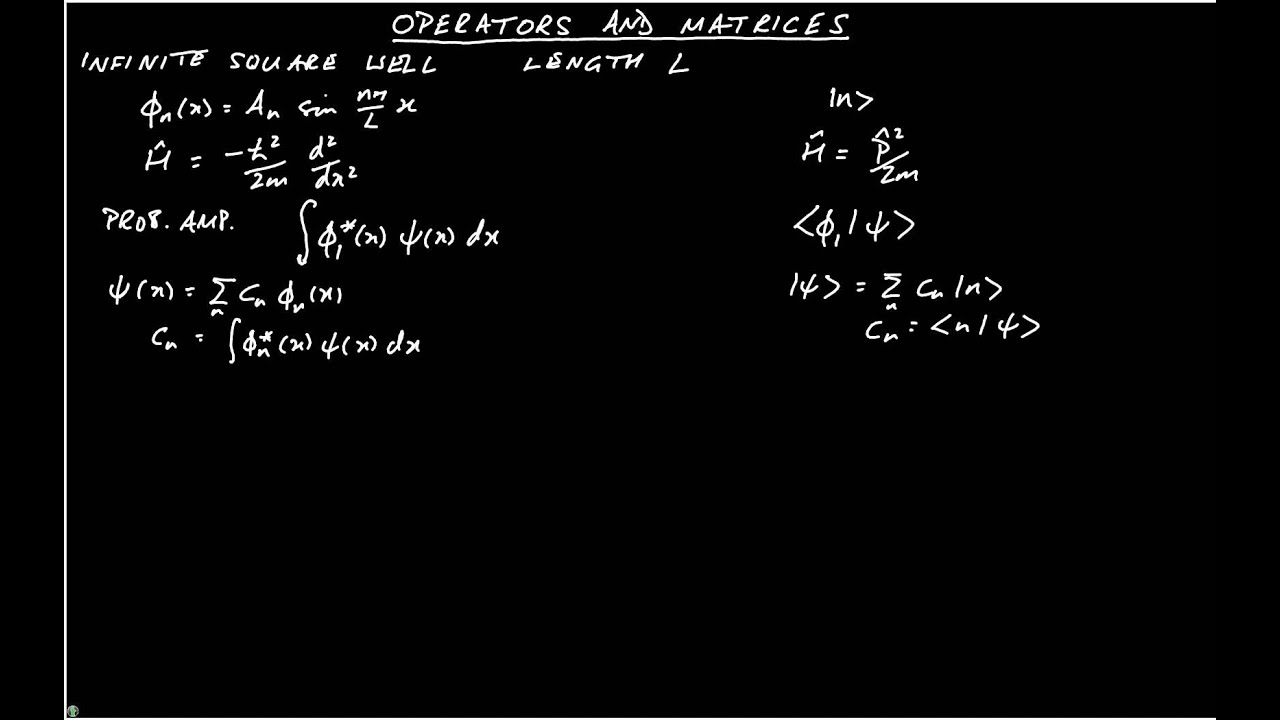 OPERATORS AND MATRICES
INFINITE SQUARE WELL LENGTH L
ϕₙ(x) = Aₙ sin nπ/L x |n>
Ĥ = -ħ²/2m d²/dx² Ĥ = p̂²/2m
PROB. AMP. ∫ ϕ₁*(x) ψ(x) dx <ϕ₁|ψ>
ψ(x) = Σₙ cₙ ϕₙ(x) |ψ> = Σₙ cₙ |n>
cₙ = ∫ ϕₙ*(x) ψ(x) dx cₙ = <n|ψ>